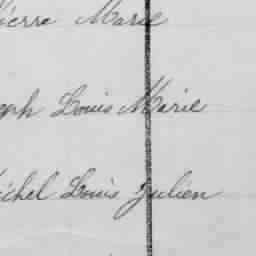 ierre Marie
eph Louis Marie
ichel Louis Julien